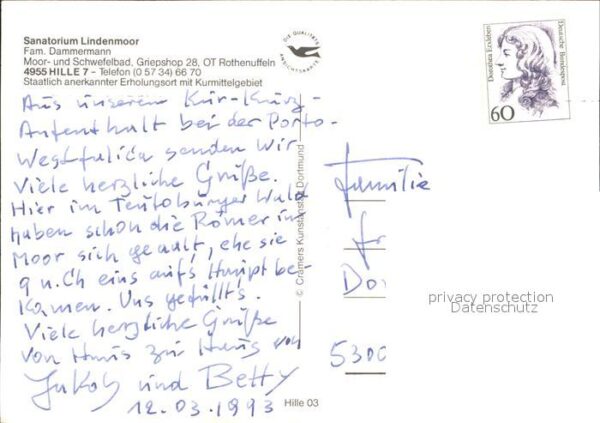 Sanatorium Lindenmoor
Fam. Dammermann
Moor- und Schwefelbad, Griepshop 28, OT Rothenuffeln
4955 HILLE 7 - Telefon (0 57 34) 66 70
Staatlich anerkannter Erholungsort mit Kurmittelgebiet
DIE QUALITÄTS ANSICHTSKARTE
Dorothea Erxleben
Deutsche Bundespost
60
Aus unserem Kur-Kurz-
Aufenthalt bei der Porto-
Westfalica senden wir
Viele herzliche Grüße.
Hier im Teutoburger Wald
haben schon die Römer im
Moor sich geaalt, ehe sie
eins aufs Haupt be-
kamen. Uns gefällt's.
Viele herzliche Grüße
von Haus zu Haus von
Jakob und Betty
12.03.1993
© Cramers Kunstanstalt Dortmund
Hille 03
Familie
Do
5300
privacy protection
Datenschutz